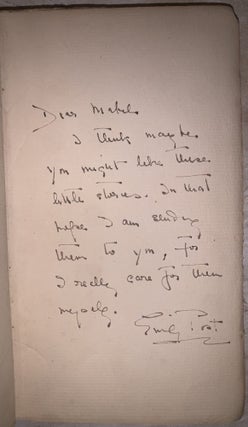 Dear Mabel
I think maybe
you might like these
little stories. In that
hope I am sending
them to you, for
I really care for them
myself.
Emily Post